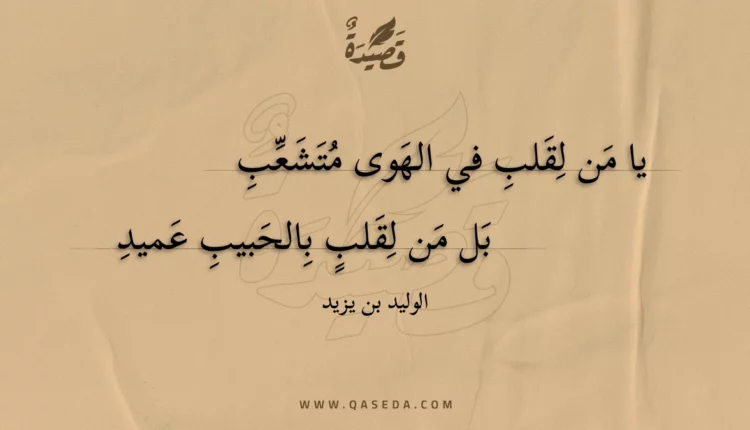 قَصِيْدَةٌ
يا مَن لِقَلبِ في الهَوى مُتَشَعِّبِ
بَل مَن لِقَلبٍ بِالحَبيبِ عَميدِ
الوليد بن يزيد
WWW.QASEDA.COM